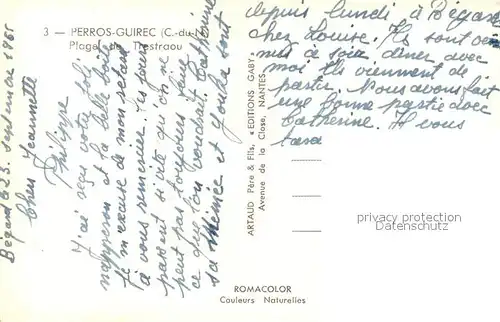 3 — PERROS-GUIREC (C.-du-N.)
Plage de Trestraou
Bégard le 23 septembre 1965
Chers Jeannette
Philippe
J'ai reçu votre joli
napperon et la belle boîte
je m'excuse de mon retard
à vous remercier. Les jours
passent si vite qu'on ne
peut pas toujours faire
ce que l'on voudrait. Catherine
sa et sont
depuis lundi à Bégard
chez Louise. Ils sont venus
à soir dîner avec
moi. Ils viennent de
partir. Nous avons fait
une bonne partie avec
Catherine. Il vous
ARTAUD Père & Fils, «EDITIONS GABY»
Avenue de la Close, NANTES
privacy protection
Datenschutz
ROMACOLOR
Couleurs Naturelles